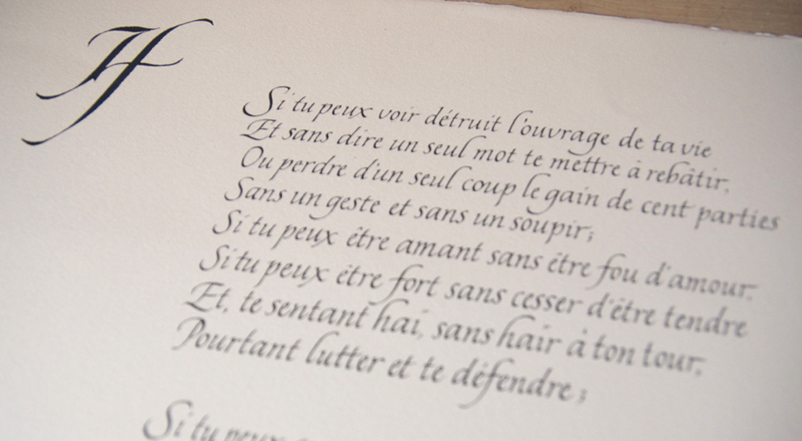 If
Si tu peux voir détruit l'ouvrage de ta vie
Et sans dire un seul mot te mettre à rebâtir,
Ou perdre d'un seul coup le gain de cent parties
Sans un geste et sans un soupir;
Si tu peux être amant sans être fou d'amour,
Si tu peux être fort sans cesser d'être tendre
Et, te sentant haï, sans haïr à ton tour,
Pourtant lutter et te défendre;
Si tu peux